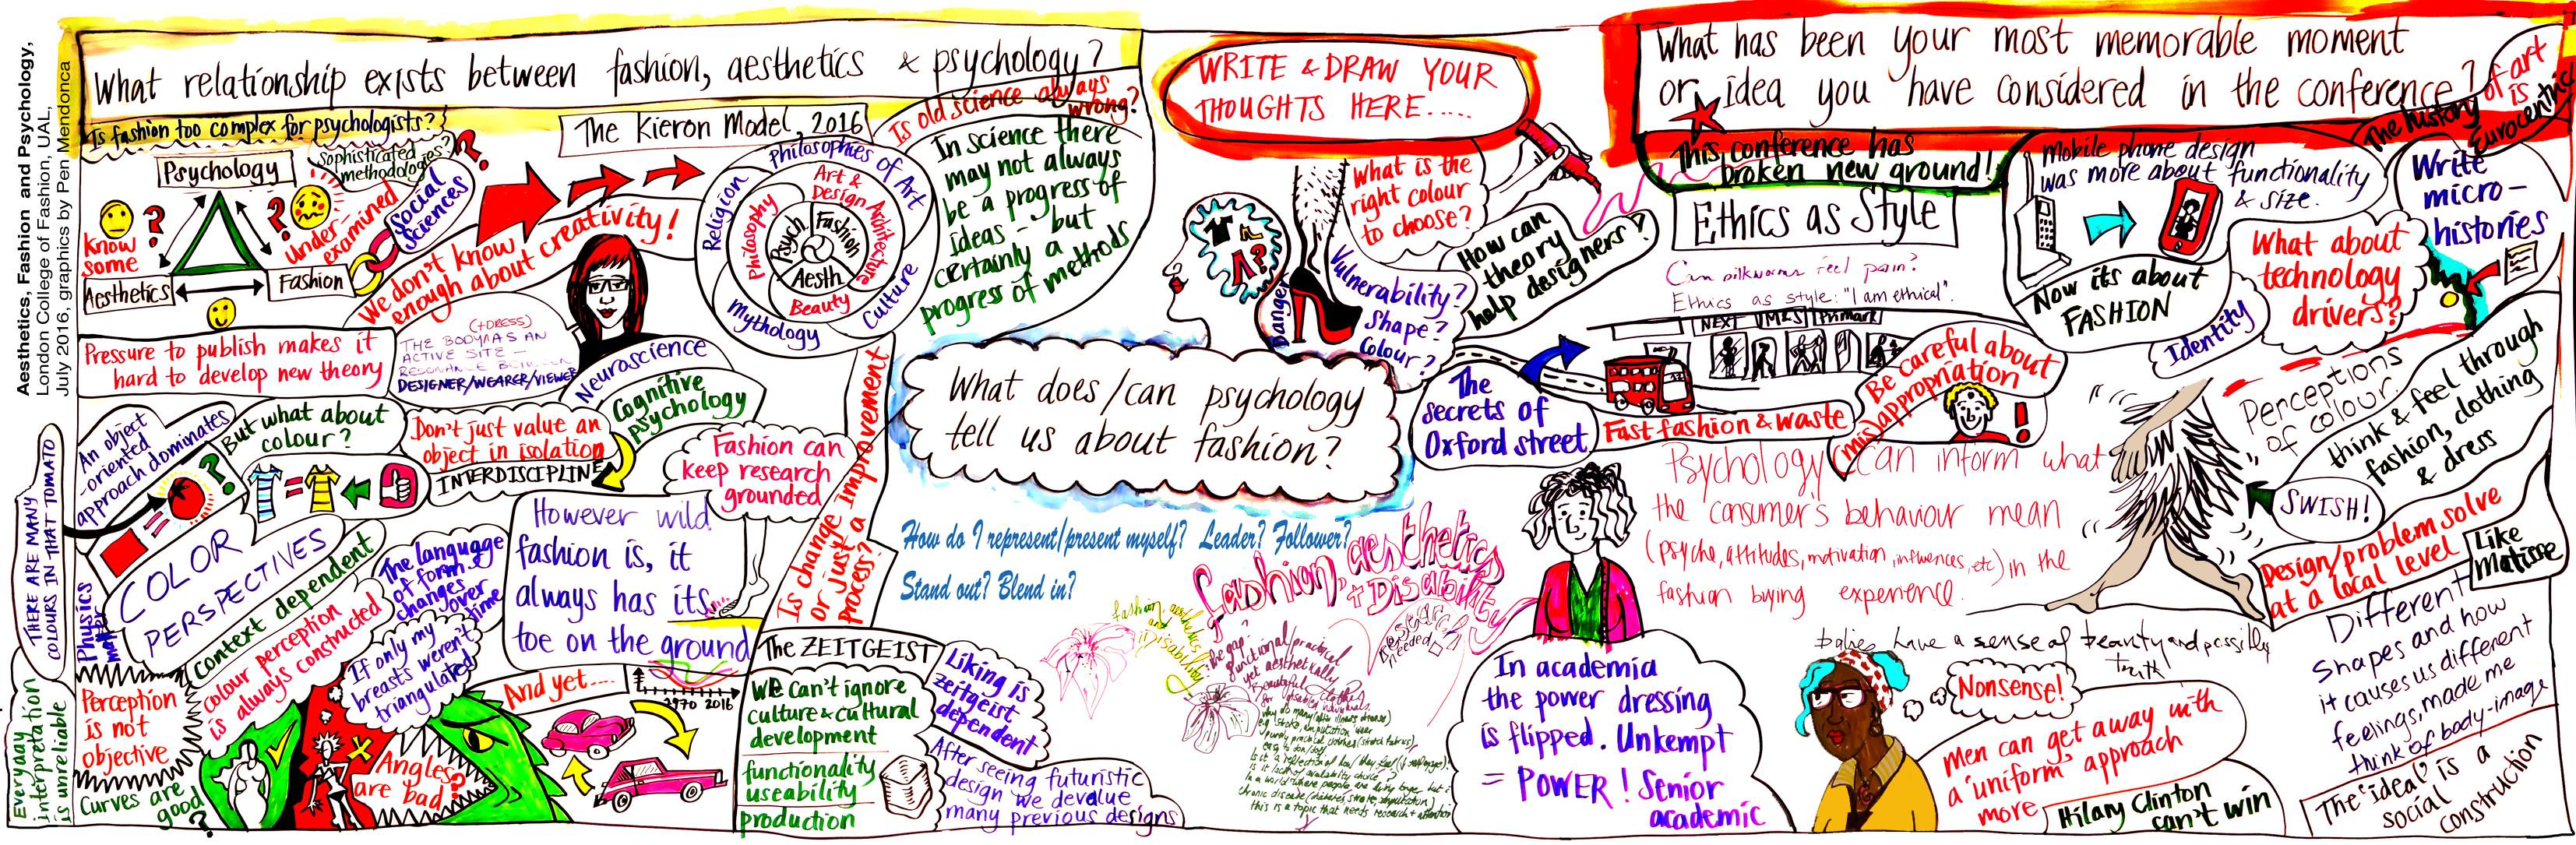 Aesthetics, Fashion and Psychology,
London College of Fashion, UAL,
July 2016, graphics by Pen Mendonca
What relationship exists between fashion, aesthetics & psychology?
Is fashion too complex for psychologists?
Psychology
Sophisticated
methodologies?
?
?
?
know
some
Under
examined
Social
Sciences
Aesthetics
Fashion
We don't know
enough about creativity!
The Kieron Model, 2016
Philosophies of Art
Religion
Culture
Mythology
Art &
Design
Architecture
Philosophy
Beauty
Psych
Fashion
Aesth
Is old science always
wrong?
In science there
may not always
be a progress of
ideas - but
certainly a
progress of methods
Pressure to publish makes it
hard to develop new theory
(+DRESS)
THE BODY AS AN
ACTIVE SITE -
RESONANCE BETWEEN
DESIGNER/WEARER/VIEWER
Neuroscience
Cognitive
psychology
An object
-oriented
approach dominates
But what about
colour?
?
Don't just value an
object in isolation
INTERDISCIPLINE
Fashion can
keep research
grounded
Is change improvement
or just a
process?
THERE ARE MANY
COLOURS IN THAT TOMATO
=
=
COLOR
PERSPECTIVES
Physics
Context dependent
The language
of form
changes
over
time
colour perception
is always constructed
If only my
breasts weren't
triangulated
However wild
fashion is, it
always has its
toe on the ground
And yet....
1970 2016
Everyday
interpretation
is unreliable
Perception
is not
objective
Curves are
good
?
Angles
are bad
The ZEITGEIST
We can't ignore
culture & cultural
development
functionality
useability
production
Liking is
zeitgeist
dependent
After seeing futuristic
design we devalue
many previous designs
WRITE & DRAW YOUR
THOUGHTS HERE.....
What is the
right colour
to choose?
?
Danger
Vulnerability?
Shape?
Colour?
How can
theory
help designers?
What does/can psychology
tell us about fashion?
How do I represent/present myself? Leader? Follower?
Stand out? Blend in?
fashion, aesthetics
+ Disability
fashion, aesthetics
and
disability
Research
needed
the gap?
functional/practical
yet aesthetically
Beautiful clothes
for disabled individuals.
What has been your most memorable moment
or idea you have considered in the conference?
The history of art
is
Eurocentric
This conference has
broken new ground!
Ethics as Style
Can silkworms feel pain?
Ethics as style: "I am ethical".
NEXT M&S Primark
The
secrets of
Oxford street
Fast fashion & waste
Be careful about
(mis)appropriation
!
Mobile phone design
was more about functionality
& size.
Now its about
FASHION
Identity
What about
technology
drivers?
Write
micro-
histories
Perceptions
of colour.
think & feel through
fashion, clothing
& dress
SWISH!
Psychology can inform what
the consumer's behaviour mean
(psyche, attitudes, motivation, influences, etc) in the
fashion buying experience.
Design/problem solve
at a local level
Like
Matisse
babies have a sense of beauty and possibly
truth
In academia
the power dressing
is flipped. Unkempt
= POWER! Senior
academic
Nonsense!
Men can get away with
a 'uniform' approach
more
Hilary Clinton
can't win
Different
Shapes and how
it causes us different
feelings, made me
think of body-image
The 'ideal' is a
social
construction